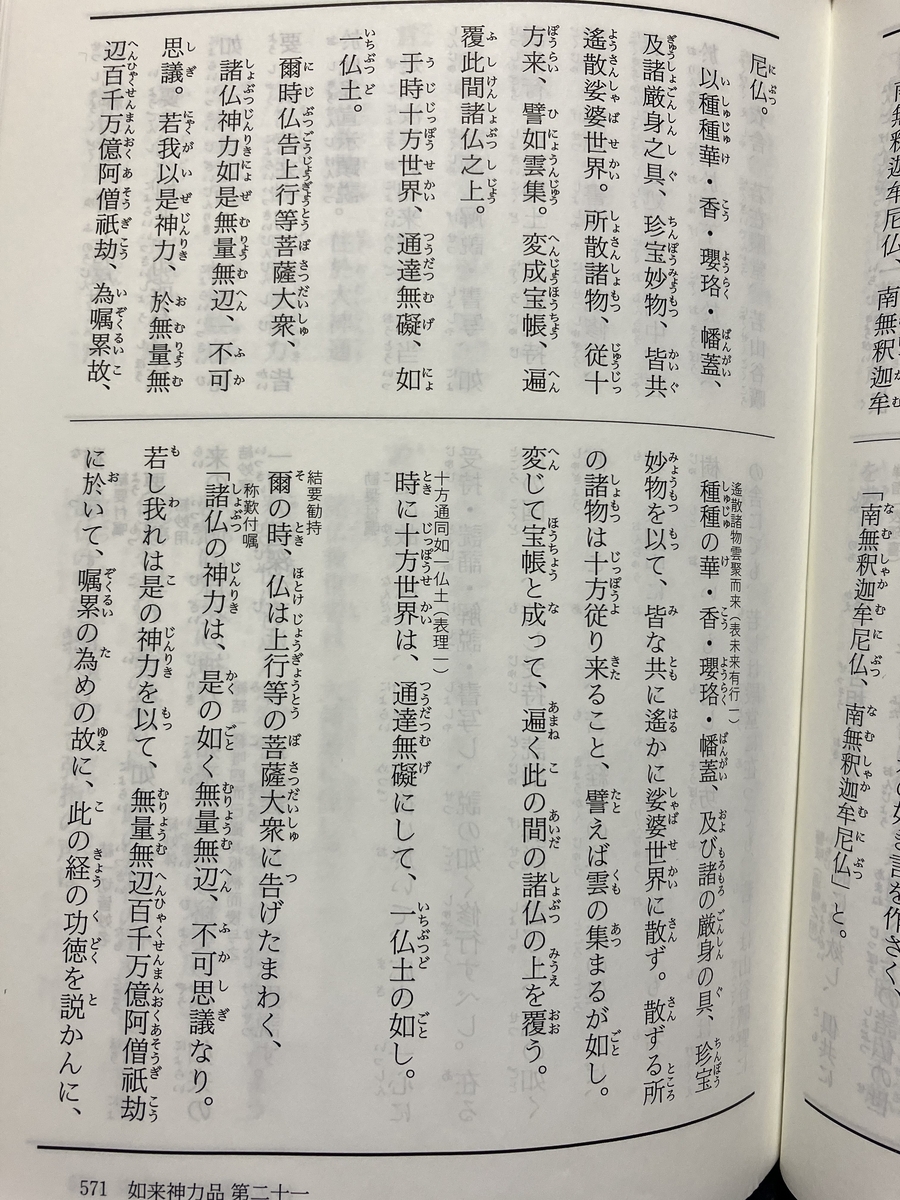 尼仏。
以種種華・香・瓔珞・幡蓋、
及諸厳身之具、珍宝妙物、皆共
遙散娑婆世界。所散諸物、従十
方来、譬如雲集。変成宝帳、遍
覆此間諸仏之上。
于時十方世界、通達無礙、如
一仏土。
爾時仏告上行等菩薩大衆、
諸仏神力如是無量無辺、不可
思議。若我以是神力、於無量無
辺百千万億阿僧祇劫、為嘱累故、
遙散諸物雲聚而来(表未来有行一)
種種の華・香・瓔珞・幡蓋、及び諸の厳身の具、珍宝
妙物を以て、皆な共に遙かに娑婆世界に散ず。散ずる所
の諸物は十方従り来ること、譬えば雲の集まるが如し。
変じて宝帳と成って、遍く此の間の諸仏の上を覆う。
十方通同如一仏土(表理一)
時に十方世界は、通達無礙にして、一仏土の如し。
結要勧持
爾の時、仏は上行等の菩薩大衆に告げたまわく、
称歎付嘱
「諸仏の神力は、是の如く無量無辺、不可思議なり。
若し我れは是の神力を以て、無量無辺百千万億阿僧祇劫
に於いて、嘱累の為めの故に、此の経の功徳を説かんに、
571 如来神力品 第二十一
南無釈迦牟尼仏、南無釈迦牟
「南無釈迦牟尼仏、南無釈迦牟尼仏」と。